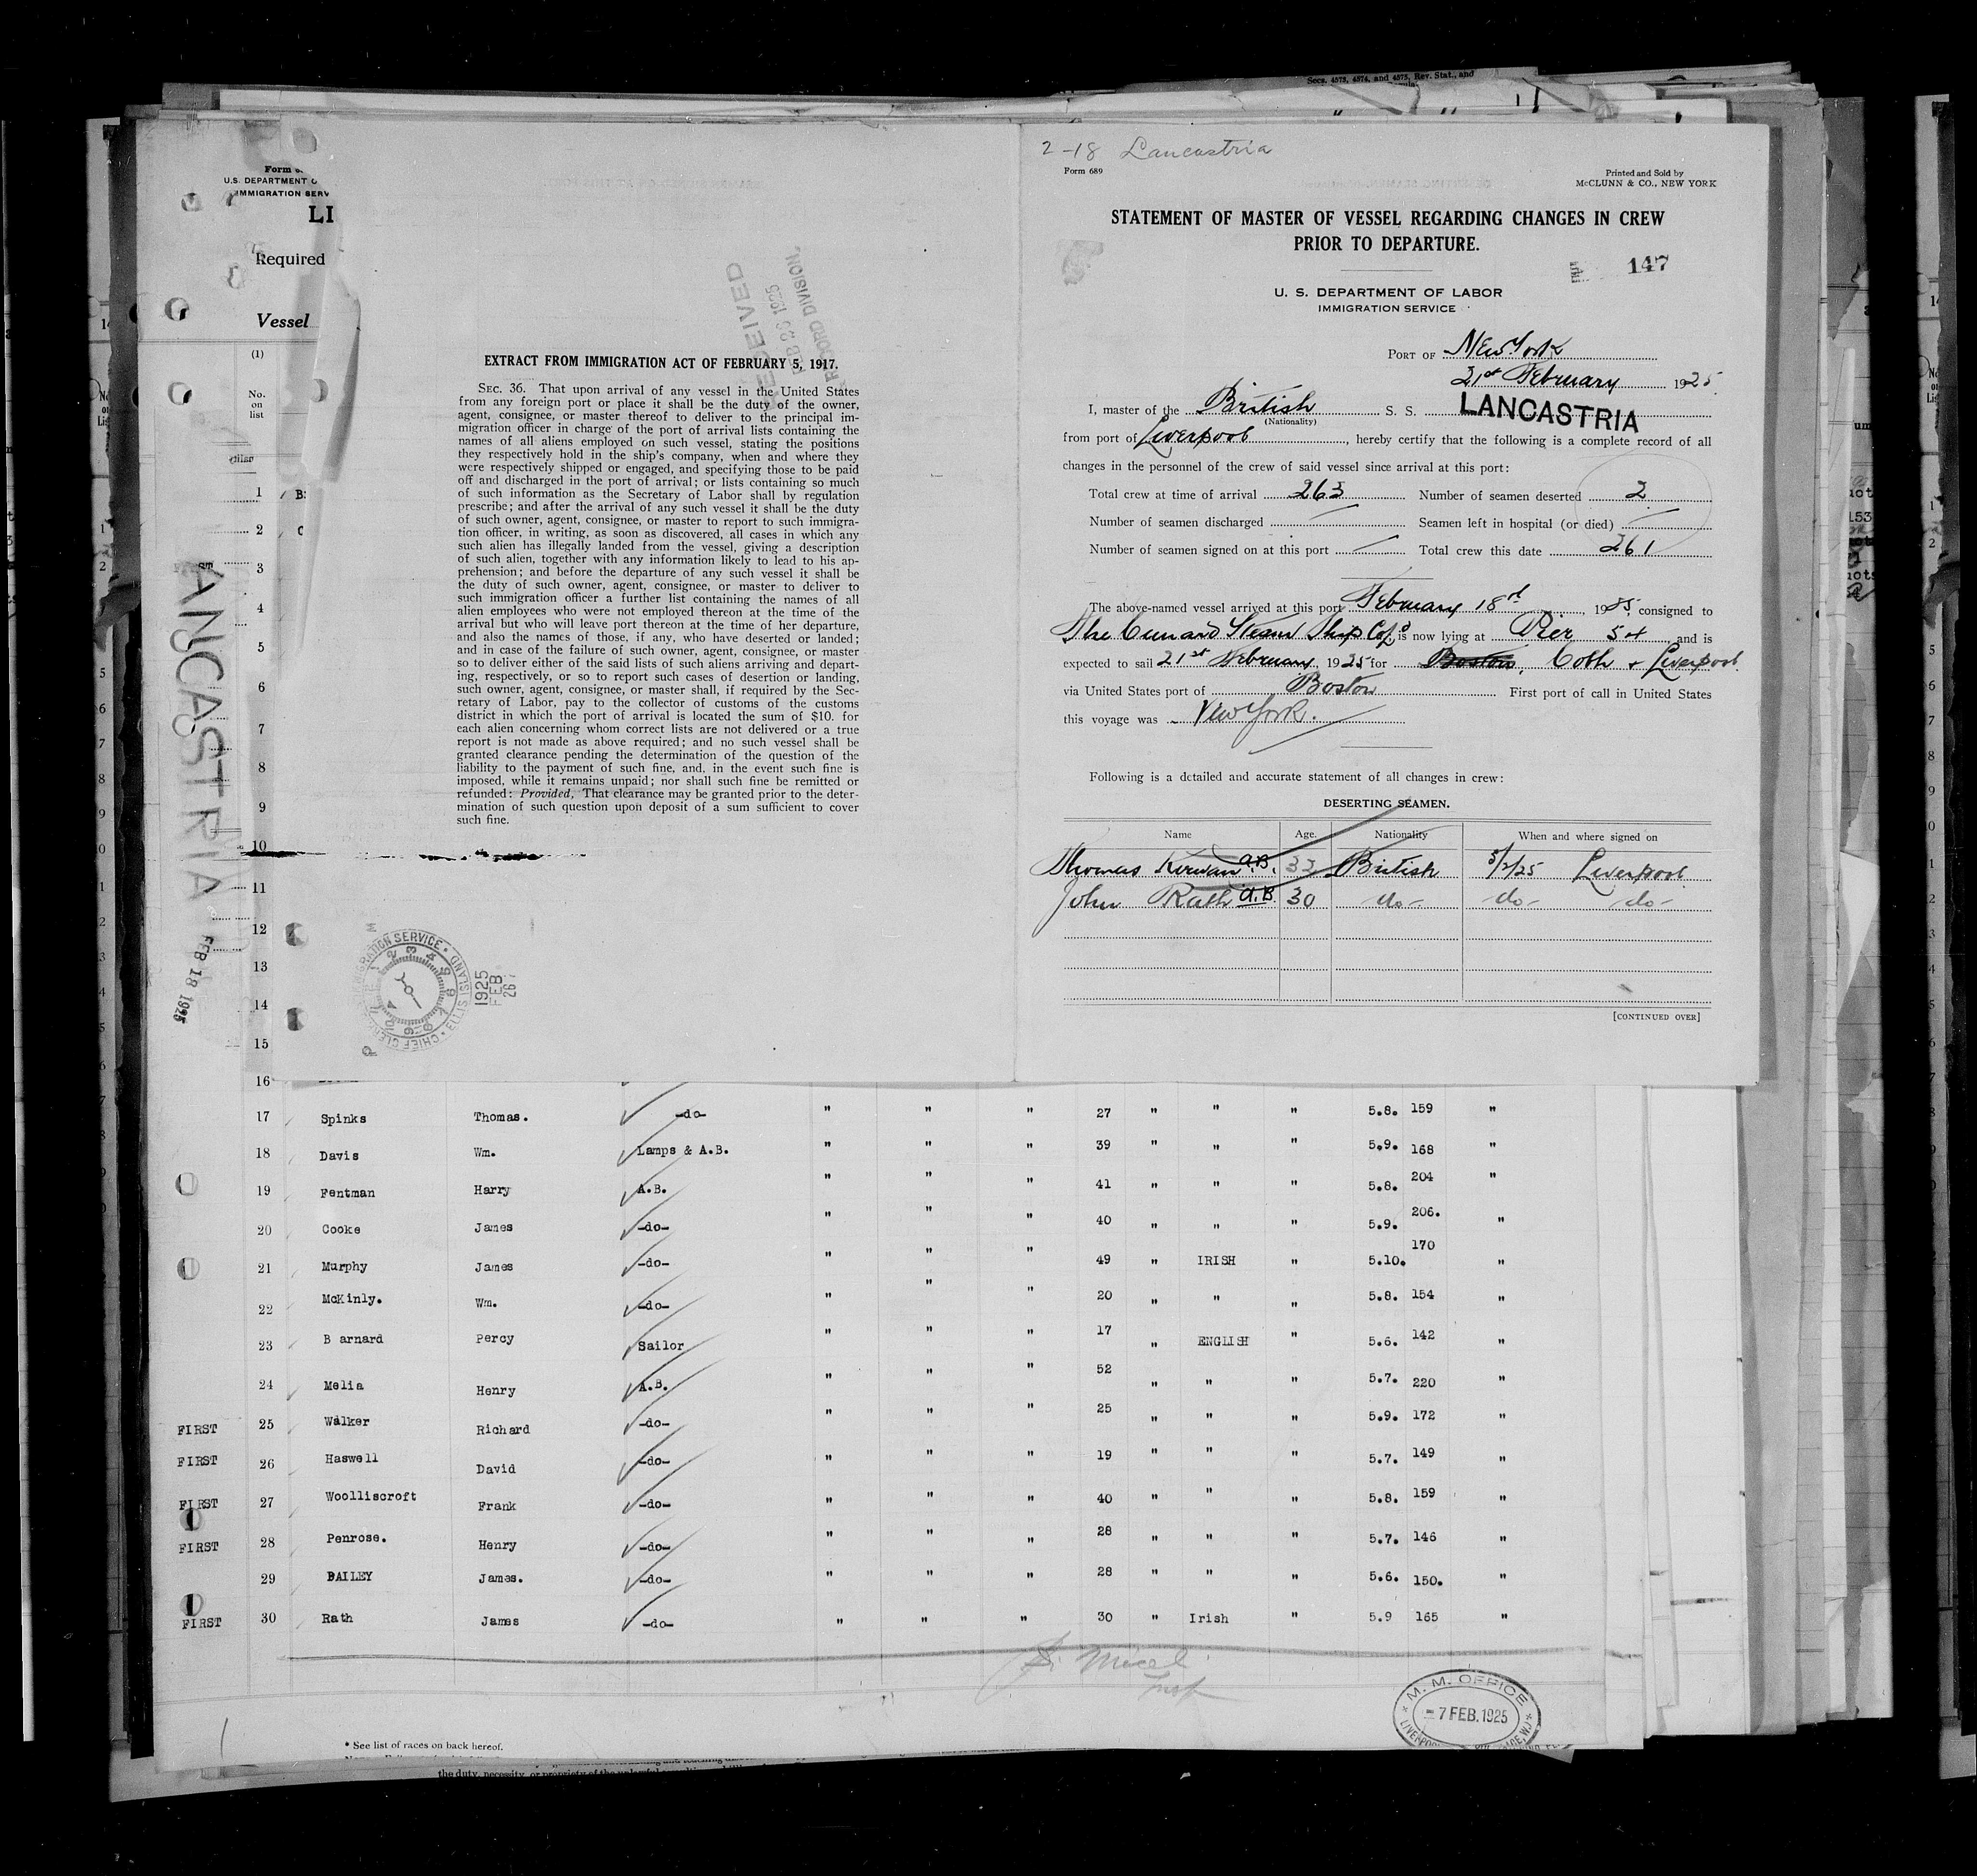 Secs. 4573, 4574, and 4575, Rev. Stat., and
Form
U.S. DEPARTMENT O
IMMIGRATION SERV
LI
Required
Vessel
(1)
No.
on
list
1
2
3
4
5
6
7
8
9
10
11
12
13
14
15
16
LANCASTRIA FEB 18 1925
RECEIVED
FEB 26 1925
RECORD DIVISION
EXTRACT FROM IMMIGRATION ACT OF FEBRUARY 5, 1917.
SEC. 36. That upon arrival of any vessel in the United States
from any foreign port or place it shall be the duty of the owner,
agent, consignee, or master thereof to deliver to the principal im-
migration officer in charge of the port of arrival lists containing the
names of all aliens employed on such vessel, stating the positions
they respectively hold in the ship's company, when and where they
were respectively shipped or engaged, and specifying those to be paid
off and discharged in the port of arrival; or lists containing so much
of such information as the Secretary of Labor shall by regulation
prescribe; and after the arrival of any such vessel it shall be the duty
of such owner, agent, consignee, or master to report to such immigra-
tion officer, in writing, as soon as discovered, all cases in which any
such alien has illegally landed from the vessel, giving a description
of such alien, together with any information likely to lead to his ap-
prehension; and before the departure of any such vessel it shall be
the duty of such owner, agent, consignee, or master to deliver to
such immigration officer a further list containing the names of all
alien employees who were not employed thereon at the time of the
arrival but who will leave port thereon at the time of her departure,
and also the names of those, if any, who have deserted or landed;
and in case of the failure of such owner, agent, consignee, or master
so to deliver either of the said lists of such aliens arriving and depart-
ing, respectively, or so to report such cases of desertion or landing,
such owner, agent, consignee, or master shall, if required by the Sec-
retary of Labor, pay to the collector of customs of the customs
district in which the port of arrival is located the sum of $10. for
each alien concerning whom correct lists are not delivered or a true
report is not made as above required; and no such vessel shall be
granted clearance pending the determination of the question of the
liability to the payment of such fine, and, in the event such fine is
imposed, while it remains unpaid; nor shall such fine be remitted or
refunded: Provided, That clearance may be granted prior to the deter-
mination of such question upon deposit of a sum sufficient to cover
such fine.
IMMIGRATION SERVICE • ELLIS ISLAND • CHIEF CLERK
1925
FEB
26
2-18 Lancastria
Form 689
Printed and Sold by
McCLUNN & CO., NEW YORK
STATEMENT OF MASTER OF VESSEL REGARDING CHANGES IN CREW
PRIOR TO DEPARTURE.
147
U. S. DEPARTMENT OF LABOR
IMMIGRATION SERVICE
PORT OF New York
21st February 1925
I, master of the British S. S. LANCASTRIA
(Nationality)
from port of Liverpool, hereby certify that the following is a complete record of all
changes in the personnel of the crew of said vessel since arrival at this port:
Total crew at time of arrival 263 Number of seamen deserted 2
Number of seamen discharged / Seamen left in hospital (or died) /
Number of seamen signed on at this port / Total crew this date 261
The above-named vessel arrived at this port February 18th, 1925, consigned to
The Cunard Steam Ship Co. is now lying at Pier 54 and is
expected to sail 21st February, 1925 for Boston, Cobh & Liverpool
via United States port of Boston First port of call in United States
this voyage was New York.
Following is a detailed and accurate statement of all changes in crew:
DESERTING SEAMEN.
Name Age. Nationality When and where signed on
Thomas Kirwan A.B. 32 British 5/2/25 Liverpool
John Rath A.B. 30 -do- -do- -do-
[CONTINUED OVER]
17 Spinks Thomas. -do- " " " 27 " " " 5.8. 159 "
18 Davis Wm. Lamps & A.B. " " " 39 " " " 5.9. 168 "
19 Fentman Harry A.B. " " " 41 " " " 5.8. 204 "
20 Cooke James -do- " " " 40 " " " 5.9. 206. "
21 Murphy James -do- " " " 49 " IRISH " 5.10. 170 "
22 McKinly. Wm. -do- " " " 20 " " " 5.8. 154 "
23 B arnard Percy Sailor " " " 17 " ENGLISH " 5.6. 142 "
24 Melia Henry A.B. " " " 52 " " " 5.7. 220 "
FIRST 25 Walker Richard -do- " " " 25 " " " 5.9. 172 "
FIRST 26 Haswell David -do- " " " 19 " " " 5.7. 149 "
FIRST 27 Woolliscroft Frank -do- " " " 40 " " " 5.8. 159 "
FIRST 28 Penrose. Henry -do- " " " 28 " " " 5.7. 146 "
29 BAILEY James. -do- " " " 28 " " " 5.6. 150. "
FIRST 30 Rath James -do- " " " 30 " Irish " 5.9 165 "
M. M. OFFICE
7 FEB. 1925
* See list of races on back hereof.
the duty, necessity, or propriety of the